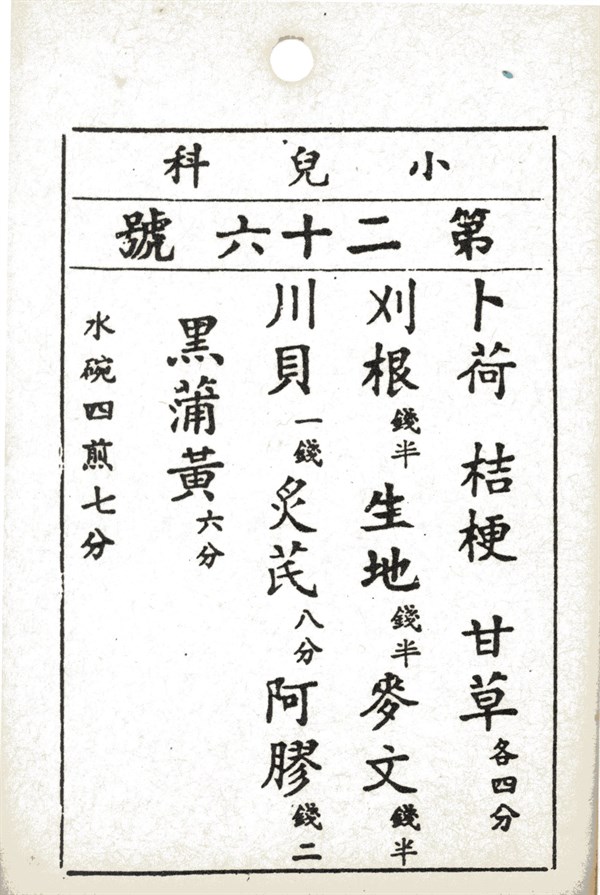 小兒科
第二十六號
卜荷 桔梗 甘草各四分
刈根錢半生地錢半麥文錢半
川貝一錢炙芪八分阿膠錢二
黑蒲黃六分
水碗四煎七分